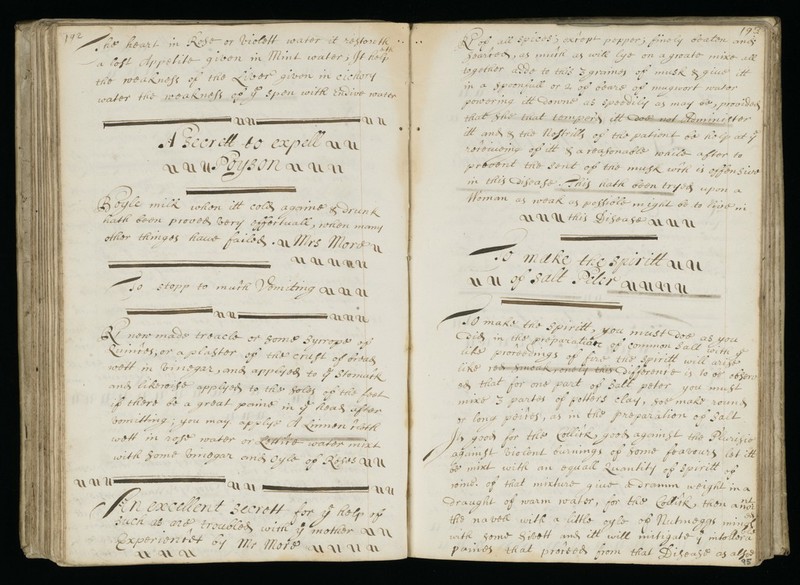 192
The heart in Rose or Violett water it restoreth
a lost Appetite given in Mint water, It help
eth
the weakness of the Liver given in cichory
water the weakness of ye spen with Endive water
A Secrett to expell
Poyson
Boyle milk when itt cold againe & drunk
hath been proved very effectuall, when many
other thinges have failed. Mrs More
To stopp to much Vomiting
Rx new made treacle or some Syrope of
Quinces, or a plaster of the crust of bread
wett in Vinegar, and applyed to ye Stomack
and likewise applyed to the soles of the feet
if there be a great paine in ye head after
vomitting; you may applye A Linnen cloth
wett in rose water or water mixt
with some vinegar and oyle of Roses
An excellent Secrett for ye help of
such as are troubled with ye mother
Experienced by Mrs More
193
Rx of all spices, except pepper, finely beaten and
searced, as much as will lye on a groate mixe all
together adde to this 3 graines of musk & give itt
in a spoonfull or 2 of beare or mugwort water
powering itt downe as speedily as may be, provided
that she that tempers itt doe not Administer
itt and & the Nostrills of the patient be help at ye
receiveing of itt & a reasonable while after to
prevent the sent of the musk wich is offensive
in this Disease. This hath been tryed upon a
Woman as weak as possible might be to live in
this Disease
To make the spiritt
of Salt Peter
To make the Spiritt, you must doe as you
did, in the preparation of common Salt with ye
like proceedings of fire the spiritt will arise
like differencie is to be observ
ed that for one part of Salt peter you must
mixe 3 partes of potters clay, soe make round
or long peices, as in the preparation of Salt
Is good for the Collick, good against the Plurisie
against violent burnings of some feavours let itt
be mixt with an equall Quantity of spiritt of
wine of that mixture give a dramm weight in a
draught of warm water, for the Collick, then anoi
nt
the navell with a little oyle of Nutmeggs ming
led
with some Civett and itt will mitigate ye intollera
paines that proceed from that Disease as also
95